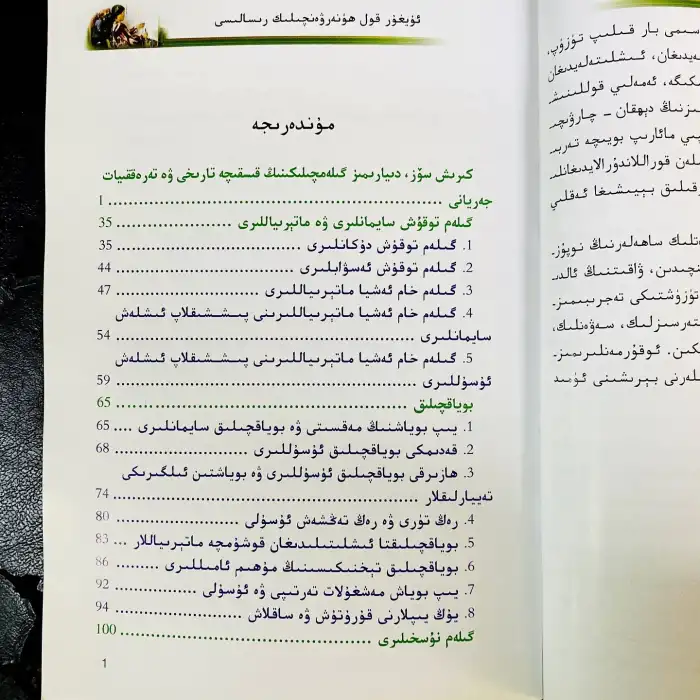 ئۇيغۇر قول ھۈنەرۋەنچىلىك رىسالىسى
مۇندەرىجە
كىرىش سۆز، دىيارىمىز گىلەمچىلىكىنىڭ قىسقىچە تارىخى ۋە تەرەققىيات
جەريانى ........................................................ 1
گىلەم توقۇش سايمانلىرى ۋە ماتېرىياللىرى .................... 35
1. گىلەم توقۇش دۇكانلىرى ........................................ 35
2. گىلەم توقۇش ئەسۋابلىرى ...................................... 44
3. گىلەم خام ئەشيا ماتېرىياللىرى ............................... 47
4. گىلەم خام ئەشيا ماتېرىياللىرىنى پىششىقلاپ ئىشلەش
سايمانلىرى ...................................................... 54
5. گىلەم خام ئەشيا ماتېرىياللىرىنى پىششىقلاپ ئىشلەش
ئۇسۇللىرى ...................................................... 59
بوياقچىلىق ...................................................... 65
1. يىپ بوياشنىڭ مەقسىتى ۋە بوياقچىلىق سايمانلىرى .... 65
2. قەدىمكى بوياقچىلىق ئۇسۇللىرى ............................ 68
3. ھازىرقى بوياقچىلىق ئۇسۇللىرى ۋە بوياشتىن ئىلگىرىكى
تەييارلىقلار .................................................... 74
4. رەڭ تۈرى ۋە رەڭ تەڭشەش ئۇسۇلى ........................ 80
5. بوياقچىلىقتا ئىشلىتىلىدىغان قوشۇمچە ماتېرىياللار ... 83
6. بوياقچىلىق تېخنىكىسىنىڭ مۇھىم ئامىللىرى ......... 86
7. يىپ بوياش مەشغۇلات تەرتىپى ۋە ئۇسۇلى ................ 92
8. يۇڭ يىپلارنى قۇرۇتۇش ۋە ساقلاش ........................ 94
گىلەم نۇسخىلىرى ............................................... 100
1
سىمى بار قىلىپ تۈزۈپ،
ئىشلىتەلەيدىغان
ئەمەلىي قوللىنىش
دېھقان - چارۋىچى
مائارىپ بويىچە تەربى
قوراللاندۇرالايدىغانلى
بېيىشىغا ئەقلى
ساھەلەرنىڭ نوپۇز
ۋاقىتنىڭ ئالدى
تۈزۈشتىكى تەجرىبىمىز
سەۋەنلىك،
ئوقۇرمەنلىرىمىز
بېرىشىنى ئۈمىد